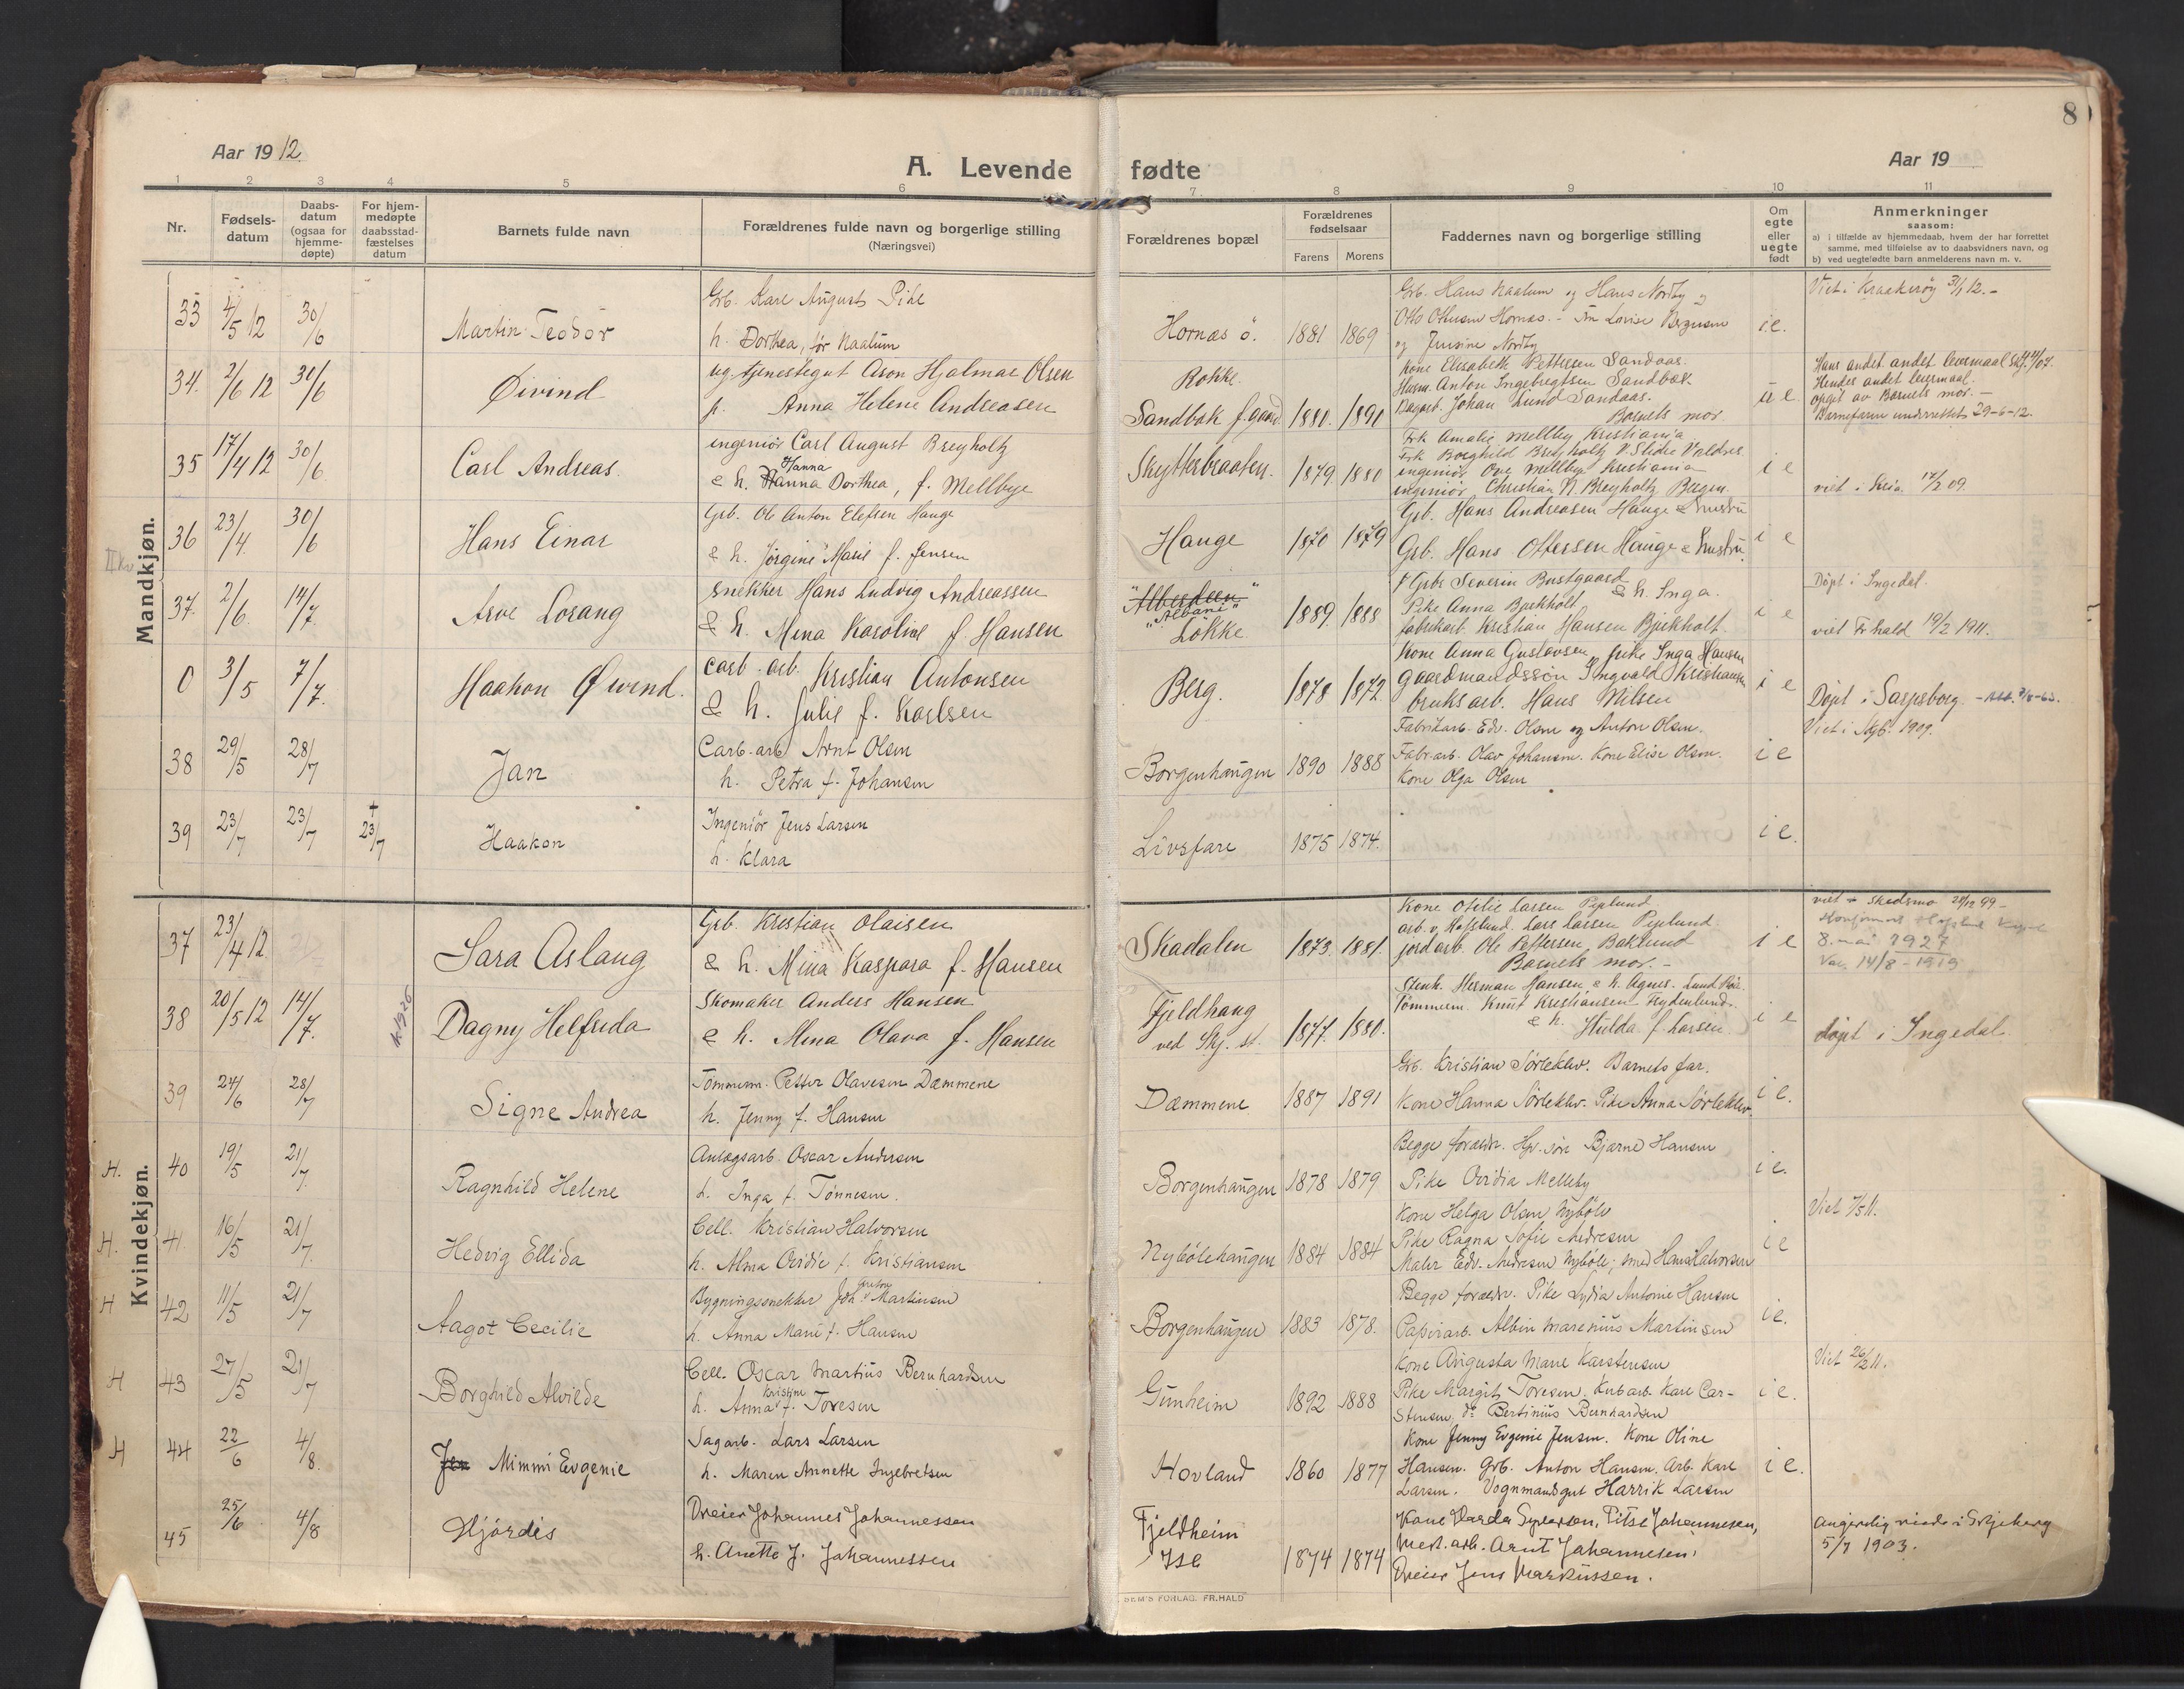 8
Aar 1912.
A. Levende fødte
Aar 19
1 2 3 4 5 6 7 8 9 10 11
Nr.
Fødsels-
datum
Daabs-
datum
(ogsaa for
hjemme-
døpte)
For hjem-
medøpte
daabsstad-
fæstelses
datum
Barnets fulde navn
Forældrenes fulde navn og borgerlige stilling
(Næringsvei)
Forældrenes bopæl
Forældrenes
fødselsaar
Farens Morens
Faddernes navn og borgerlige stilling
Om
egte
eller
uegte
født
Anmerkninger
saasom:
a) i tilfælde av hjemmedaab, hvem der har forrettet
samme, med tilføielse av to daabsvidners navn, og
b) ved uegtefødte barn anmelderens navn m. v.
Mandkjøn.
33 4/5 12 30/6 Martin Teodor
Grb. Karl August Pihl
h. Dorthea, før Naalum
Hornæs ö. 1881 1869
Grb. Hans Naalum og Hans Nordby og
Otto Ottersen Hornæs.
og Nordby
i e.
Viet i Kraakerøy 3/1 12.-
34. 2/6 12 30/6 Øivind
ug. tjenestegut Aron Hjalmar Olsen
p. Anna Helene Andreasen
Rokke.
Sandbæk f.gaard 1880. 1890
Kone Elisabeth Pettersen Sandaas.
Husm. Anton Ingebregtsen Sandbæk
Dagarb. Johan Lund Sandaas.
Barnets mor.
u e.
Hans andet leiermaal
Hendes andet leiermaal.
opgit av Barnets mor. -
Barnefaren underrettet 29-6-12.
35 17/4 12 30/6 Carl Andreas.
ingeniør Carl August Breyholtz
Hanna
e h. Hanna Dorthea, f. Mellbye
Skytterbraaten. 1879. 1880
Frk Amalie Mellby Kristiania
Frk Borghild Breyholtz V. Slidre Valdres
ingeniør Ove Mellbye Kristiania
ingeniør Christian N. Breyholtz Bergen.
i e
viet i Kria. 17/2 09.
36 23/4. 30/6 Hans Einar
Grb. Ole Anton Elefsen Hauge
& h. Jørgine Marie f. Jensen
Hauge 1870 1879
Grb. Hans Andreasen Hauge & hustru
Grb. Hans Ottersen Hauge & hustru
i e
37. 2/6. 14/7. Arve Lorang
Snekker Hans Ludvig Andreassen
& h. Mina Karoline f. Hansen
"Alberdeen"
"Albani"
Løkke 1889. 1888
Grbr Severin Bustgaard
& h. Inga.
Pike Anna Bjerkholt
fabrikarb. Kristian Hansen Bjerkholt
i e
Døpt i Ingedal.
viet Fr.hald 19/2 1911.
0 3/5 7/7. Haakon Øivind.
Carb. arb. Kristian Antonsen
& h. Julie f. Karlsen
Berg. 1878 1872
Kone Anna Gustavsen, pike Inga Hansen
Gaardmandssøn Ingvald Kristiansen
bruksarb. Hans Nilsen
i e
Døpt i Sarpsborg.
38 29/5 28/7 Jan
Carb. arb. Arnt Olsen
h. Petra f. Johansen
Borgenhaugen 1890 1888
Fabrikarb. Edv. Olsen og Anton Olsen.
Fabr. arb. Olav Johansen. Kone Elise Olsen.
Kone Olga Olsen
i e
Viet i Spb. 1909.
39 23/7 23/7 † 23/7 Haakon
Ingeniør Jens Larsen
h. Klara
Livsfare 1875 1874.
i e.
Kvindekjøn.
37 23/4 12. Sara Aslaug
Grb. Kristian Olaisen
& h. Mina Kaspara f. Hansen
Skadalen 1873. 1881.
Kone Otelie Larsen Piplund
arb. v. Hafslund. Lars Larsen Piplund
jordarb. Ole Pettersen Baklund
Barnets mor. -
i e
8. mai 1927
Vac. 14/8 - 1919
38 20/5 12 14/7. k.1926 Dagny Helfrida
Skomaker Anders Hansen
e h. Mina Olava f. Hansen
Fjeldhaug
ved Skj. st. 1877. 1880.
Stenh. Herman Hansen & h. Agnes. Lund
Tømmerm. Knut Kristiansen
& h. Hulda f. Larsen
i e
døpt i Ingedal
39 24/6 28/7 Signe Andrea
Tømmerm. Petter Olavesen Dæmmene
h. Jenny f. Hansen
Dæmmene 1887 1891
Grb. Kristian Sørleklev. Barnets far.
Kone Hanna Sørleklev. Pike Anna Sørleklev.
i e.
H. 40 19/5 21/7. Ragnhild Helene
Anlægsarb. Oscar Andersen
h. Inga f. Tønnesen.
Borgenhaugen 1878 1879
Begge forældr. Bjarne Hansen
Pike Ovidia Melleby
i e.
H. 41. 16/5 21/7. Hedvig Ellida
Cell. Kristian Halvorsen
h. Alma Ovidie f. Kristiansen
Nybølehaugen 1884 1884
Kone Helga Olsen Nybøle
Pike Ragna Sofie Andresen
Maler Edv. Andresen Nybøle; smed Hans Halvorsen
i e
Viet 7/5 11.
H 42 11/5 21/7 Aagot Cecilie
Bygningssnekker Joh. Anton Martinsen
h. Anna Marie f. Hansen
Borgenhaugen 1883 1878.
Begge forældr. Pike Lydia Antonie Hansen
Papirarb. Albin Marenius Martinsen
i e.
H 43 27/5 21/7 Borghild Alvilde
Cell. Oscar Martius Bernhardsen
h. Anna Kristine f. Toresen
Gunheim 1892 1888
Kone Augusta Marie Karstensen
Pike Margit Toresen. Karl Car-
stensen, do Bertinius Bernhardsen
i e.
Viet 26/2 11.
H 44 22/6 4/8. Jen Mimmi Evgenie
Sagarb. Lars Larsen
h. Maren Annette Ingebretsen
Hovland 1860 1877
Kone Jenny Evgenie Jensen. Kone Oline
Hansen. Grb. Anton Hansen. Arb. Karl
Larsen. Vognmandsgut Harrik Larsen
i e.
45 25/6 4/8 Hjørdis
Dreier Johannes Johannessen
h. Anette J. Johannessen
Fjeldheim
Ise 1874 1874
Johannesen,
Mek. arb. Arnt Johannesen,
Dreier Jens Markussen.
i Skjeberg
5/7 1903.
SEM'S FORLAG. FR.HALD